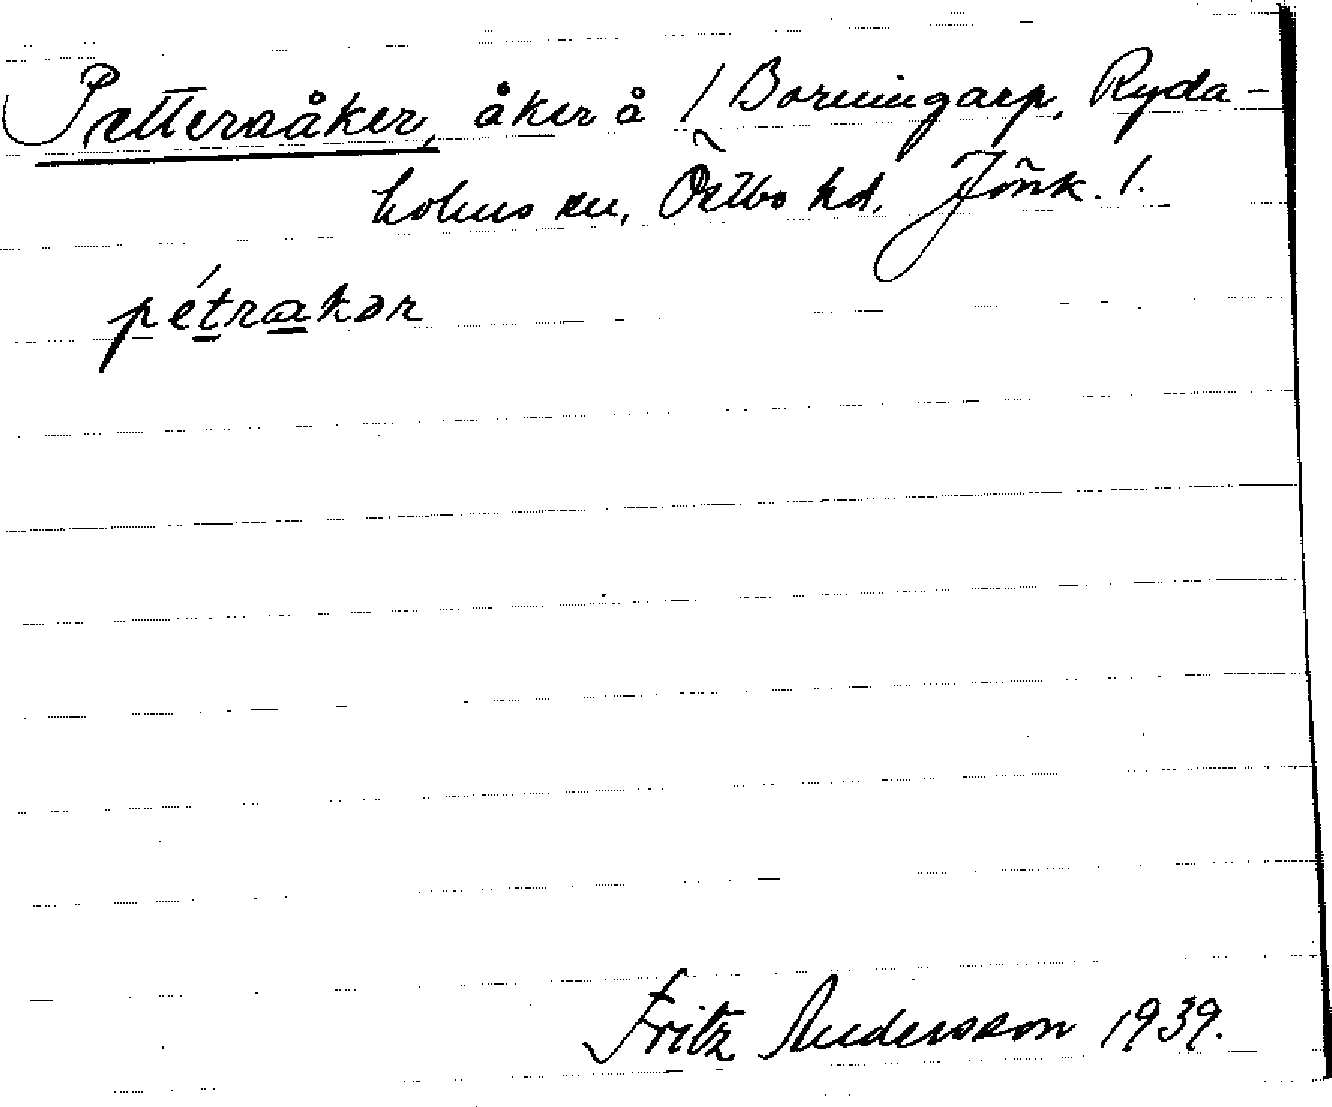 Petteraåker, åker å 1 Borningarp, Ryda-
holms sn, Östbo hd. Jönk. l.
pétrakər
Fritz Andersson 1939.